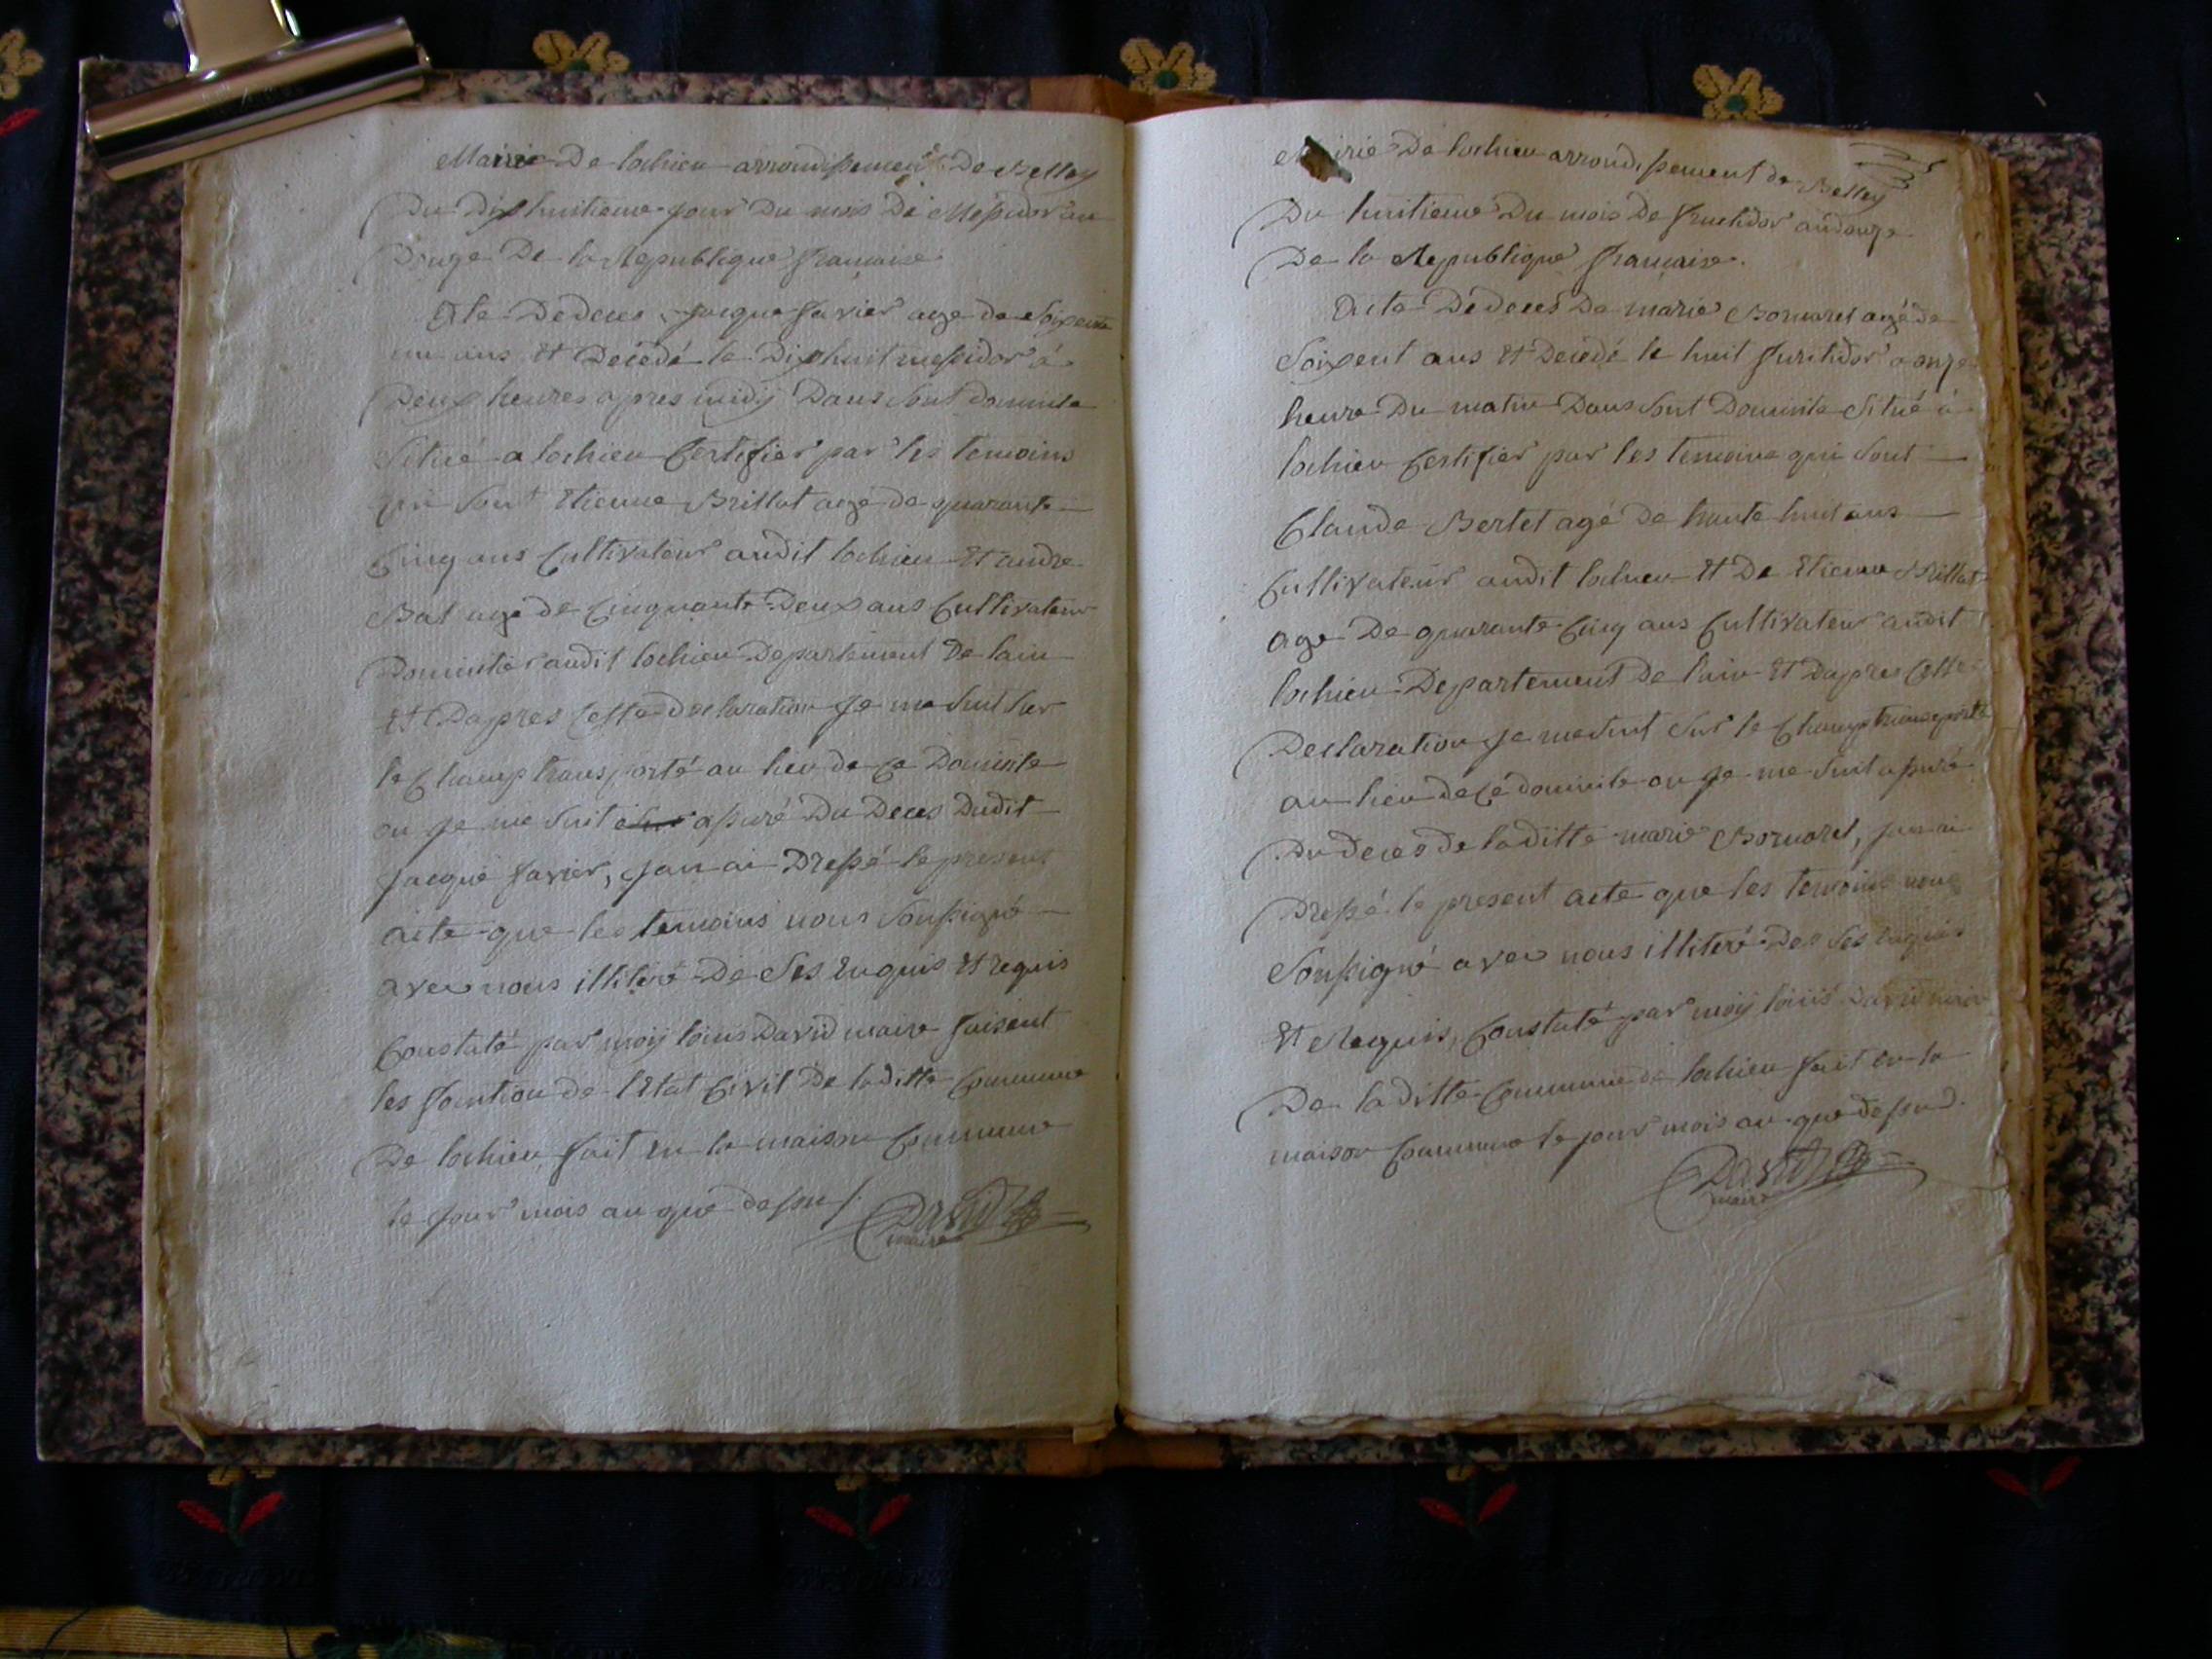 Mairie De lochieu arrondissement De Belley
Du Dixhuitieme jour Du mois De Messidor an
Douze De la Republique francaise
Acte De deces jacque favier age de Soixente
un ans Et Décédé le Dixhuit messidor à
Deux heures apres midÿ Dans Sont domicile
Situé a lochieu Certifier par les temoins
qui Sont Etienne Brillat agé de quarante
Cinq ans Cultivateur audit lochieu Et andre
Bal agé de Cinquante Deux ans Cultivateur
Domicilier audit lochieu Departement De lain
Et Dapres Cette Declaration Je me suit Sur
le Champ transporté au lieu de Ce Domicile
ou Je me Suit assuré Du Deces Dudit
Jacque favier, Jan ai Dressé le present
acte que les temoins nous Soussigné
avec nous illiteré De Ses Enquis Et requis
Constaté par moÿ louis David maire faisent
les fonction de lEtat Civil De laditte Commune
De lochieu fait en la maison Commune
le Jour mois an que dessus /. David
maire
Mairie De lochieu arrondissement de Belley
Du huitieme Du mois De fructidor an douze
De la Republique francaise.
Acte De decés De marie Bornarel agé de
Soixent ans Et Decédé le huit fructidor a onze
heure Du matin Dans Sont Domicile Situé à
lochieu Certifier par les temoins qui Sont
Claude Bertet agé de trente huit ans
Cultivateur audit lochieu Et De Etienne Brillat
age De quarante Cinq ans Cultivateur audit
lochieu Departement De lain Et Dapres Cette
Declaration Je me Suit Sur le Champ transporté
au lieu de Cé domicile ou Je me Suit assuré
Du deces de laditte marie Bornarel, Jan ai
Dressé le present acte que les temoins nous
Soussigné avec nous illiteré Des Ses enquis
Et Requis, Constaté par moÿ louis David maire
De laditte Commune de lochieu fait en la
maison Commune le jour mois an que dessus.
David
maire